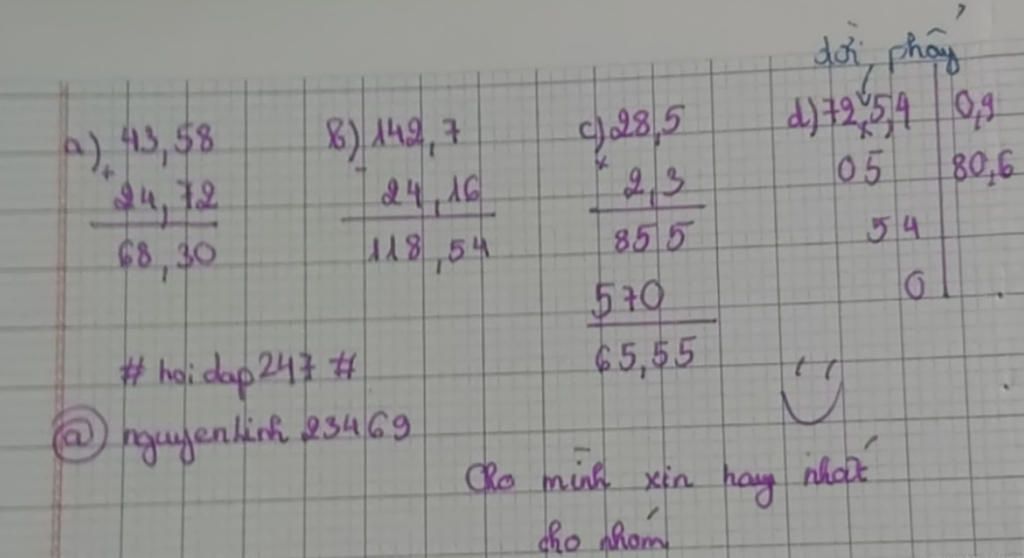 dời phẩy
a) 43,58
+
24,72
68,30
b) 142,7
-
24,16
118,54
c) 28,5
x
2,3
855
570
65,55
d) 72,5,4 0,9
05 80,6
54
0
# hoidap247 #
@ nguyenlinh 23469
Cho mình xin hay nhất
cho nhóm